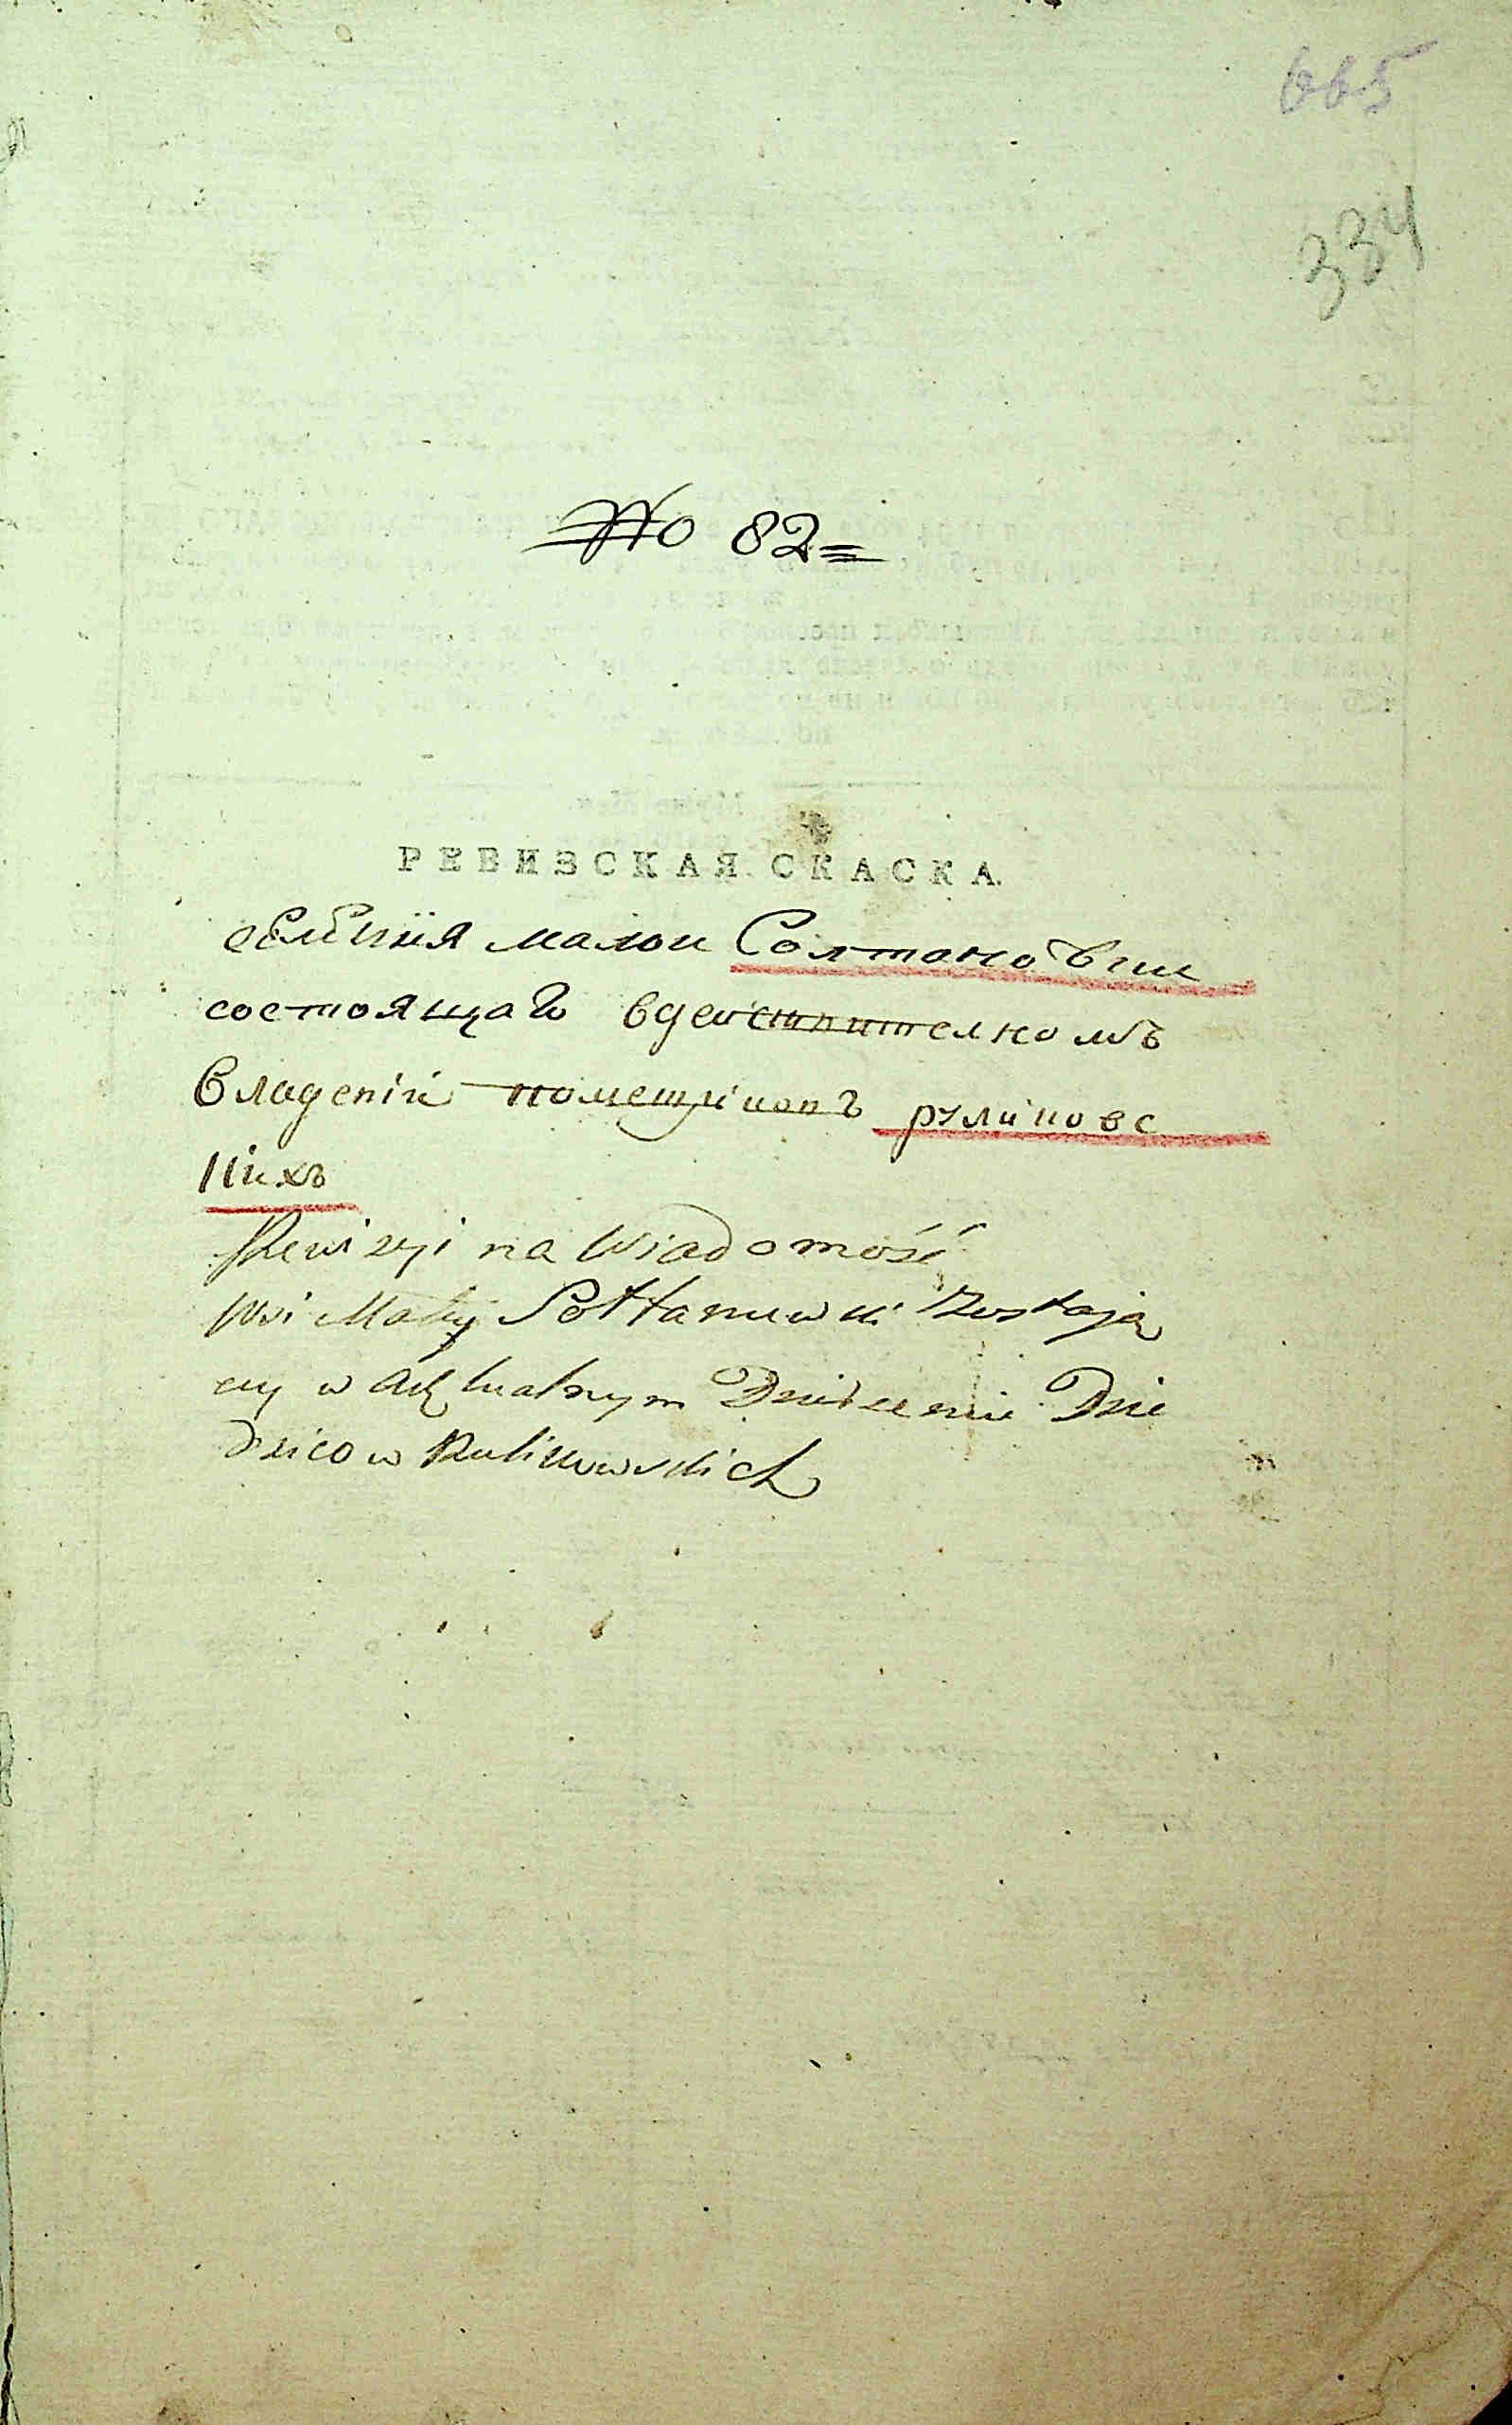 665
334
No 82=
РЕВИЗСКАЯ СКАСКА.
селения малои Солтановки
состоящаго вдеиствителномъ
владеніи помещиковъ руликовс
кихъ
Rewizyi na Wiadomość
Wsi Małey Sołtanuwki Zostaią
cey w Actualnym Dzierzeniu Dzie
dzicow Rulikowskich